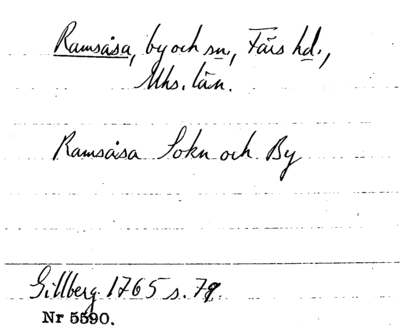 Ramsåsa, by och sn, Färs hd.,
Mhs. län.
Ramsåsa Sokn och By
Gillberg 1765 s.
Nr 5590.